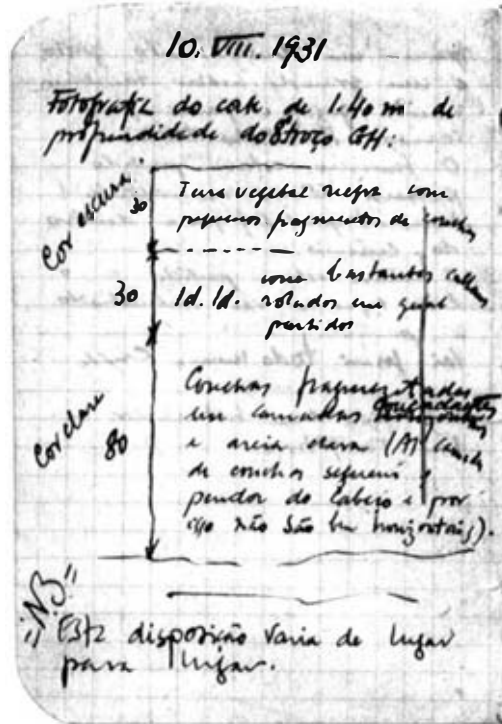 10. VIII. 1931
Fotografia do corte de 1.40 m de
profundidade do troço GH:
Cor escura
30
Terra vegetal negra com
pequenos fragmentos de conchas
30
Id. Id. com bastantes calhaus
rolados em geral
partidos
Cor clare
80
Conchas fragmentadas
em camadas
e areia escura (As camadas
de conchas seguem o
pendor do Cabeço e por
isso não são bem horizontais).
"NB"
Esta disposição varia de lugar
para lugar.